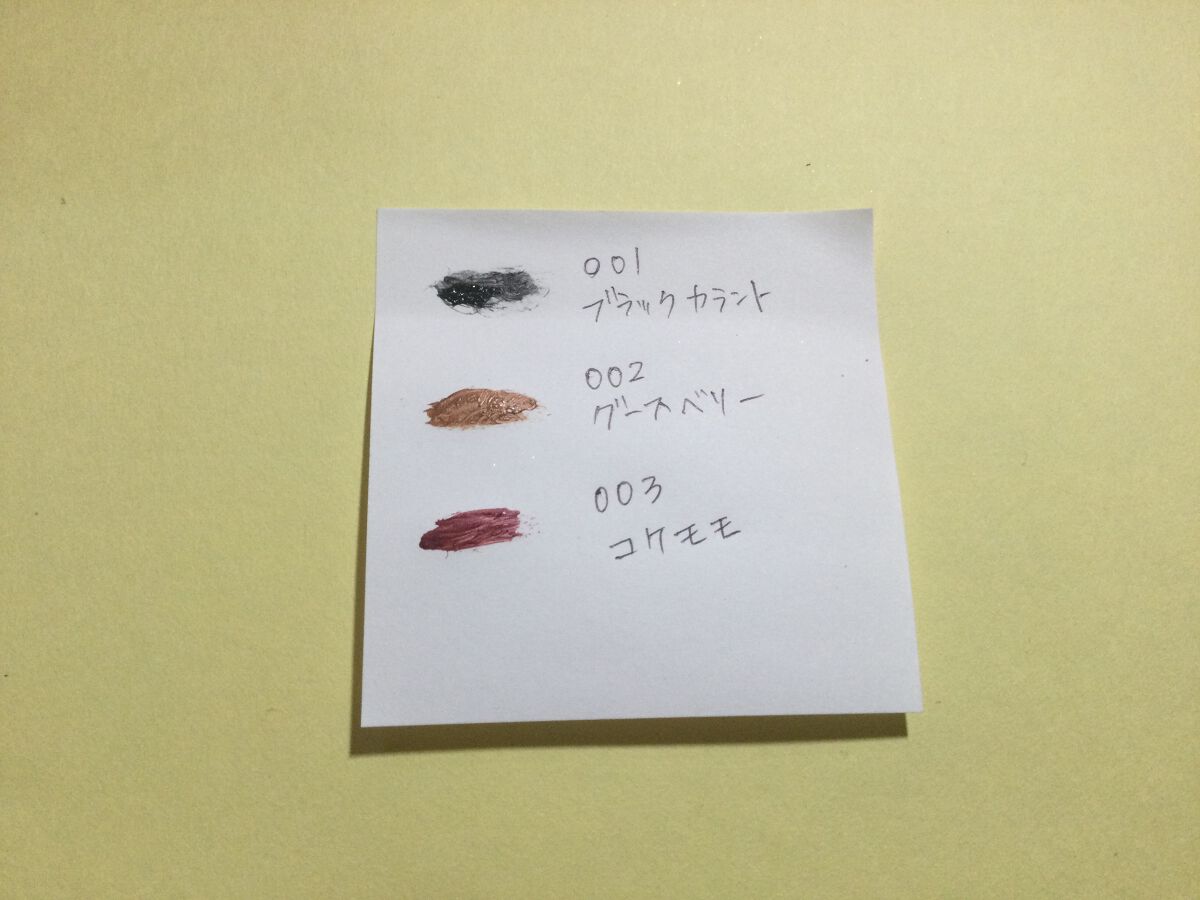 001
ブラックカラント
002
グースベリー
003
コケモモ